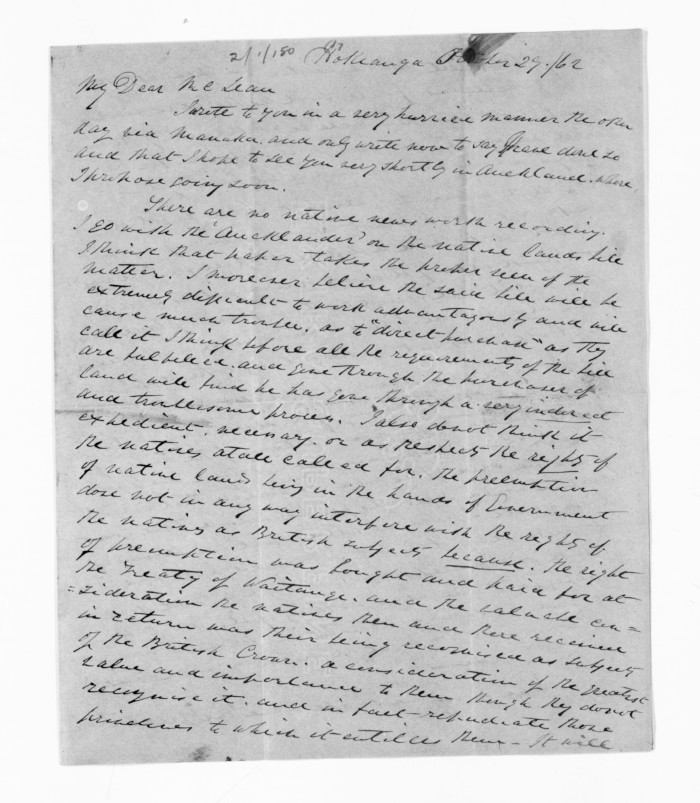 Hokianga October 29./62
My Dear McLean
I wrote to you in a very hurried manner the other
day via Manuka. and only write now to say I have done so
and that I hope to see you very shortly in Auckland. where
I propose going soon.
There are no native news worth recording.
I go with the 'Aucklander' on the native lands bill
I think that paper takes the proper view of the
matter. I moreover believe the said bill will be
extremely difficult to work advantagously and will
cause much trouble. as to "direct purchase" as they
call it I think before all the requirements of the bill
are fulfilled. and gone through the purchaser of
land will find he has gone through a very indirect
and troublesome process. I also do not think it
expedient. necessary. or as respects the rights of
the natives atall called for. the preemption
of native lands being in the hands of Government
dose not in any way interfere with the rights of
the natives as British subjects because. the right
of preemption was bought and paid for at
the Treaty of Waitangi. and the valuable con=
=sideration the natives then and there received
in return was their being recognised as subjects
of the British Crown. a consideration of the greatest
value and importance to them though they do not
recognise it. and in fact repudiate those
principles to which it entitles them - It will